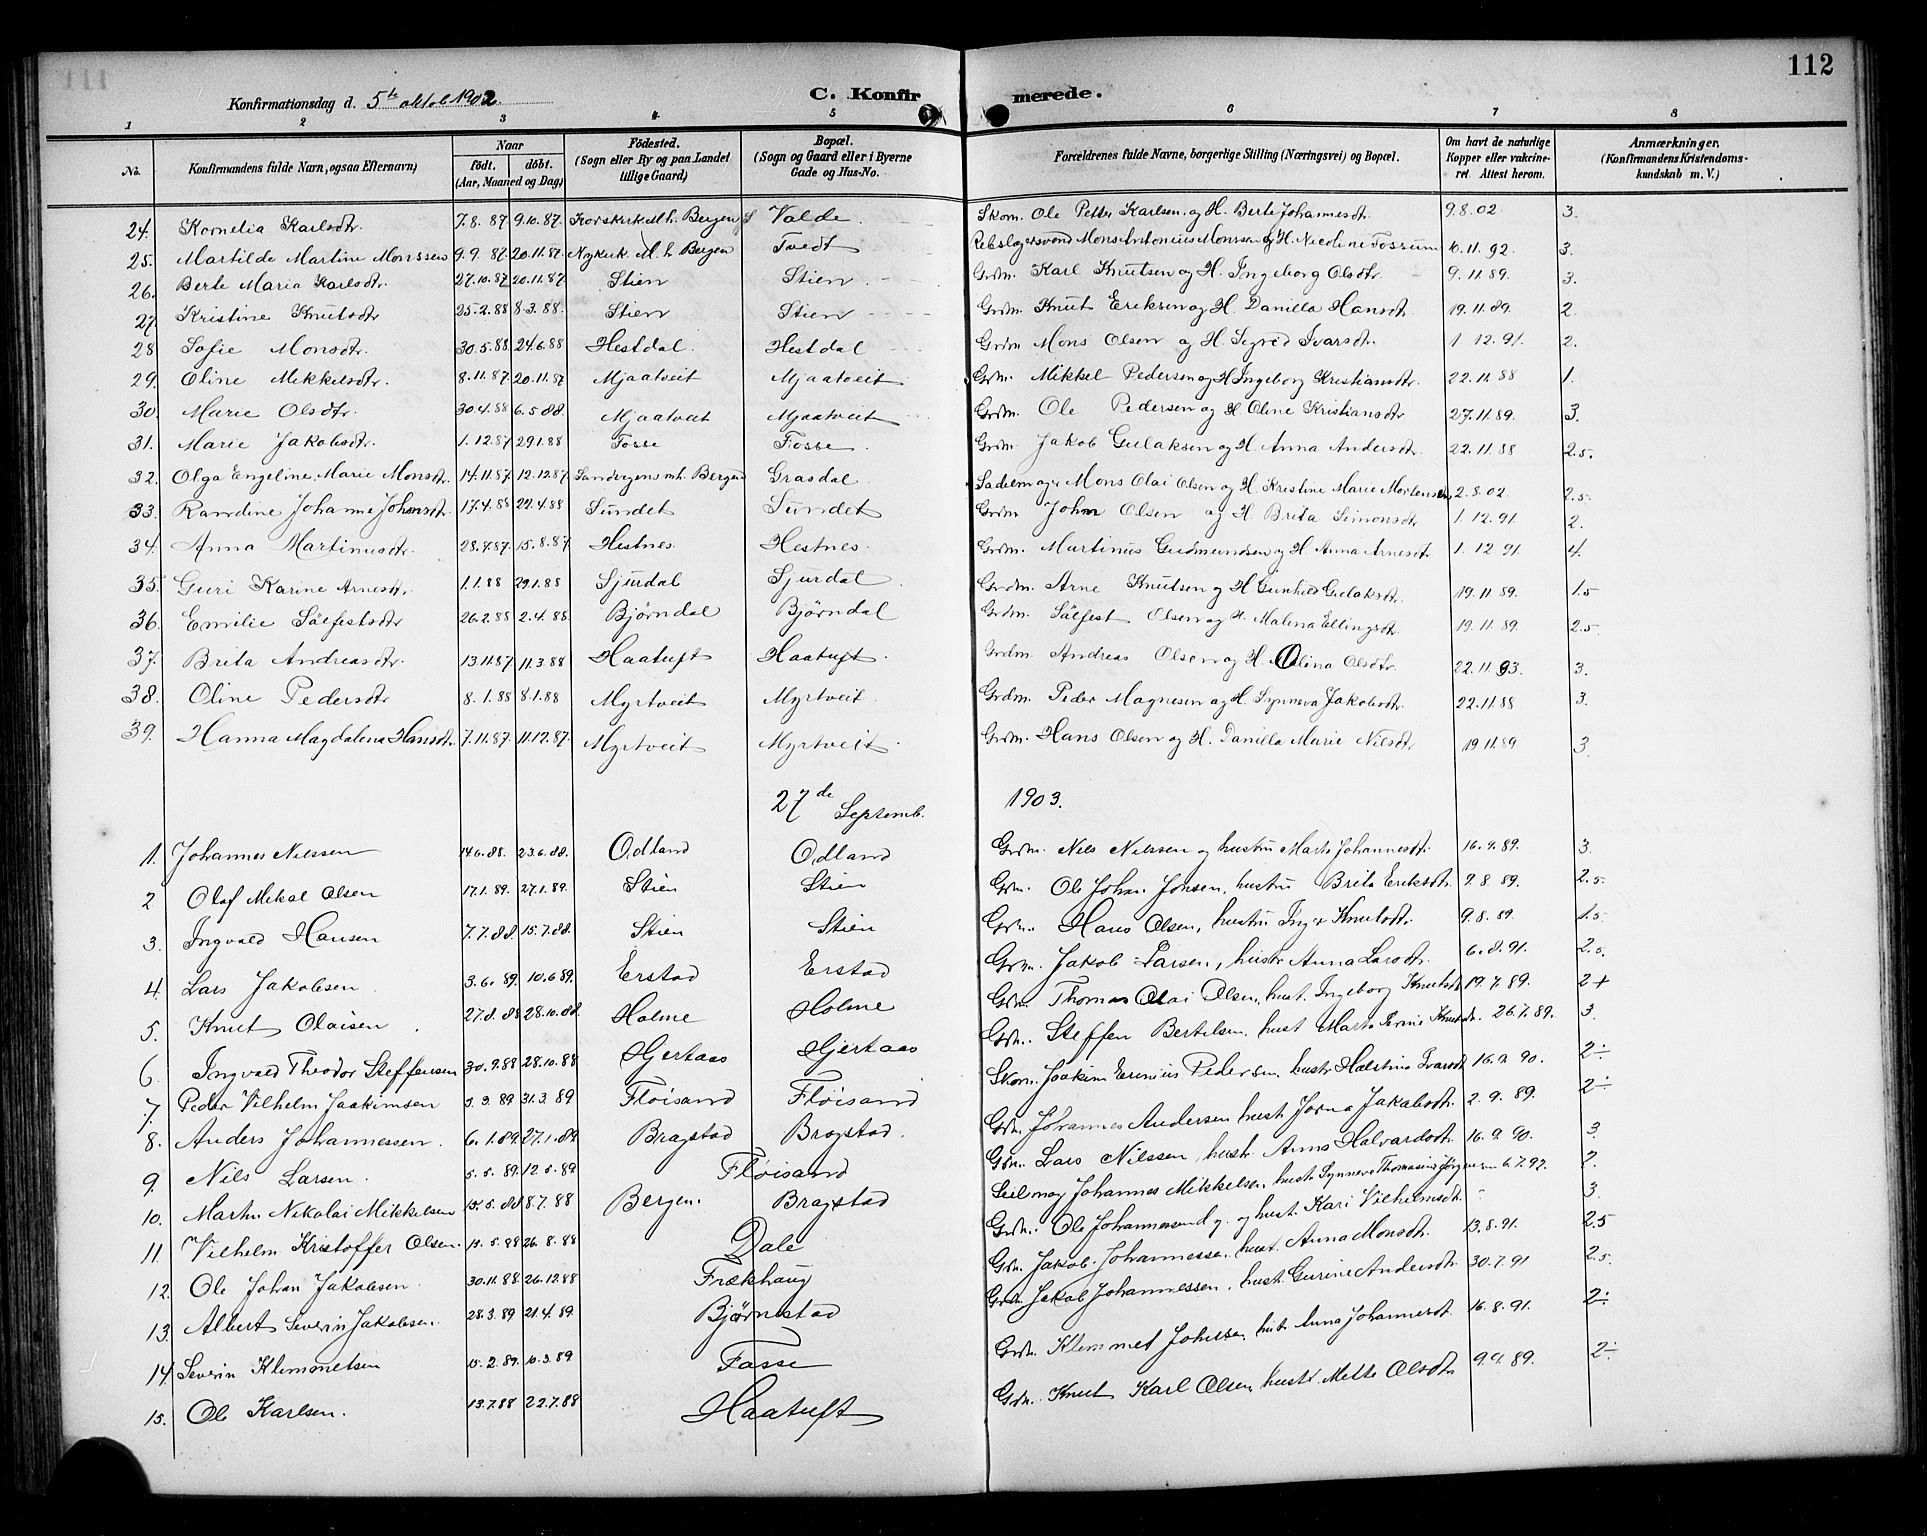 112
Konfirmationsdag d. 5te oktob 1902. C. Konfirmerede.
1 2 3 4 5 6 7 8
No. Konfirmandens fulde Navn, ogsaa Efternavn) Naar födt. döbt. (Aar, Maaned og Dag) Födested. (Sogn eller By og paa Landet tillige Gaard) Bopæl. (Sogn og Gaard eller i Byerne Gade og Hus-No. Forældrenes fulde Navne, borgerlige Stilling (Næringsvei) og Bopæl. Om havt de naturlige Kopper eller vakcineret. Attest herom. Anmærkninger. (Konfirmandens Kristendomskundskab m. V.)
24. Kornelia Karlsdtr. 7.8.87 9.10.87. Korskirk Mh. Bergen Valde Skom. Ole Petter Karlsen og H. Berte Johannesdtr 9.8.02 3.
25. Martilde Martine Monssen 9.9.87. 20.11.87. Nykirk. M. h. Bergen Tvedt Rebslagersvend Mons Antonius Monssen og H. Nicoline Fossum 10.11.92. 3.
26. Berte Maria Karlsdtr. 27.10.87 20.11.87. Stien Stien Grdm. Karl Knutsen og H. Ingeborg Olsdtr. 9.11.89. 3.
27. Kristine Knutsdtr 25.2.88 8.3.88. Stien Stien Grdm. Knut Eriksen og H. Danilla Hansdtr. 19.11.89. 2.
28 Sofie Monsdtr. 30.5.88 24.6.88 Hestdal. Hestdal Grdm Mons Olsen og H. Sigrid Ivarsdtr. 1.12.91. 2.
29. Oline Mikkelsdtr. 8.11.87 20.11.87 Mjaatveit Mjaatveit Grdm. Mikkel Pedersen og H Ingeborg Kristiansdtr. 22.11.88 1.
30. Marie Olsdtr. 30.4.88 6.5.88. Mjaatveit Mjaatveit Grdm. Ole Pedersen og H Oline Kristiansdtr 27.11.89. 3.
31. Marie Jakobsdtr. 1.12.87 29.1.88 Fosse Fosse Grdm. Jakob Gulaksen og H Anna Andersdtr. 22.11.88 2.5.
32. Olga Engeline Marie Monsdtr. 14.11.87 12.12.87 Sandvigens mh. Bergen Grasdal Sadelmager Mons Olai Olsen og H. Kristine Marie Mortensen 2.8.02. 2.5
33. Randine Johanne Johnsdtr. 17.4.88 22.4.88 Sundet Sundet Grdm John Olsen og H. Brita Simonsdtr 1.12.91. 2.
34. Anna Martinusdtr. 28.7.87. 15.8.87 Hestnes. Hestnes. Grdm. Martinus Gudmundsen og H Anna Arnesdtr 1.12.91. 4.
35. Guri Karine Arnesdtr. 1.1.88 29.1.88 Sjurdal Sjurdal Grdm. Arne Knutsen og H Gunhild Gulaksdtr. 19.11.89. 1.5
36. Emilie Sälfestsdtr 26.2.88 2.4.88. Bjørndal Bjørndal Grdm. Sälfest Olsen og H. Malena Ellingsdtr. 19.11.89. 2.5.
37. Brita Andreasdtr. 13.11.87 11.3.88 Haatuft Haatuft. Grdm. Andreas Olsen og H. Olina Olsdtr. 22.11.93. 3.
38. Oline Pedersdtr 8.1.88 8.1.88 Myrtveit Myrtveit. Grdm. Peder Magnesen og H. Synneva Jakobsdtr. 22.11.88 3.
39. Hanna Magdalena Hansdtr. 7.11.87. 11.12.87. Myrtveit Myrtveit. Grdm. Hans Olsen og H. Danilla Marie Nilsdtr 19.11.89 3.
27de Septemb. 1903.
1. Johannes Nilssen 14.6.88. 23.6.88. Odland Odland Grdm. Nils Nilssen og hustru Marta Johannesdtr. 16.9.89. 3.
2 Olaf Mikal Olsen 17.1.89. 27.1.89. Stien Stien Grdm. Ole Johan Jonsen, hustru Brita Eriksdtr. 9.8.89. 2.5.
3. Ingvald Hansen 7.7.88. 15.7.88. Stien Stien Grdm. Hans Olsen, hustru Inger Knutsdtr. 9.8.89. 1.5
4. Lars Jakobsen 3.6.89. 10.6.89. Erstad Erstad Grdm. Jakob Larsen, hustr Anna Larsdtr. 6.8.91. 2.5.
5. Knut Olaisen 27.8.88 28.10.88. Holme Holme Grdm. Thomas Olai Olsen, hust. Ingeborg Knutsdtr 19.7.89. 2+
6. Ingvald Theodor Steffensen 30.9.88 28.10.88 Hjertaas Hjertaas Grdm. Steffen Bertelsen, hust Marta Knutsdtr. 26.7.89. 3.
7. Peder Vilhelm Jaakimsen 5.3.89 31.3.89 Fløisand Fløisand Skom. Jaakim Pedersen, hustr Ivarsdtr 16.9.90. 2÷
8. Anders Johannessen. 6.1.89. 27.1.89. Bragstad Bragstad. Grdm. Johannes Andersen hust. Jorna Jakobsdtr. 2.9.89. 2÷
9. Nils Larsen. 5.5.89. 12.5.89 Fløisand Grdm. Lars Nilssen, hustr. Anna Halvardsdtr. 16.9.90. 3.
10. Martin Nikolai Mikkelsen 15.5.88 8.7.88 Bergen. Bragstad Seilmag Johannes Mikkelsen, hustr Synneve Thomasine Jørgensen 6.7.97. 2.
11. Vilhelm Kristoffer Olsen. 15.5.88 26.8.88 Dale Grdm. Ole og hust. Kari Vilhelmsdtr. 3.
12. Ole Johan Jakobsen 30.11.88 26.12.88 Frækhaug Grdm Jakob Johannessen, hust. Anna Monsdtr. 13.8.91. 2.5
13. Albert Severin Jakobsen. 28.3.89 21.4.89 Bjørnestad Grdm. Jakob Johannessen, hust. Gurine Andersdtr. 30.7.91 2.5.
14. Severin Klemmetsen 15.2.89. 10.3.89 Fosse Grdm. Klemmet Johnssen, hust. Anna Johannesdtr. 16.8.91. 2÷
15. Ole Karlsen. 13.7.88 22.7.88 Haatuft Grdm. Knut Karl Olsen, hustr. Mette Olsdtr 9.9.89. 2÷